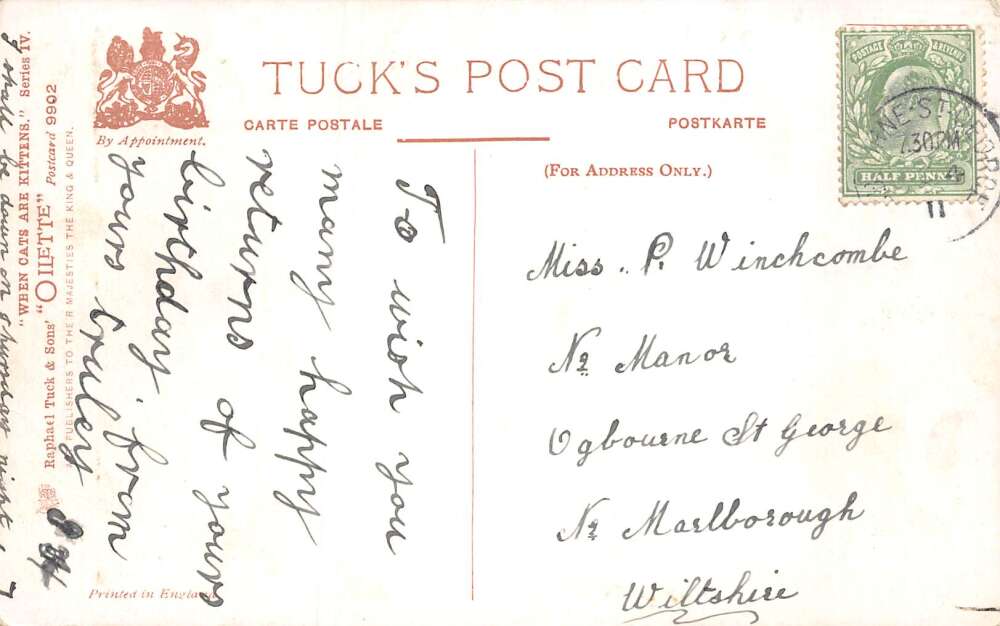 TUCK'S POST CARD
CARTE POSTALE
POSTKARTE
By Appointment.
(FOR ADDRESS ONLY.)
POSTAGE & REVENUE
HALF PENNY
7.30PM
11
To wish you
many happy
returns of yours
birthday from
yours truley
Miss. P. Winchcombe
Nr Manor
Ogbourne St George
Nr Marlborough
Wiltshire
I shall be down on thursday night
"WHEN CATS ARE KITTENS." Series IV.
Raphael Tuck & Sons' "OILETTE" Postcard 9902
PUBLISHERS TO THEIR MAJESTIES THE KING & QUEEN.
Printed in England